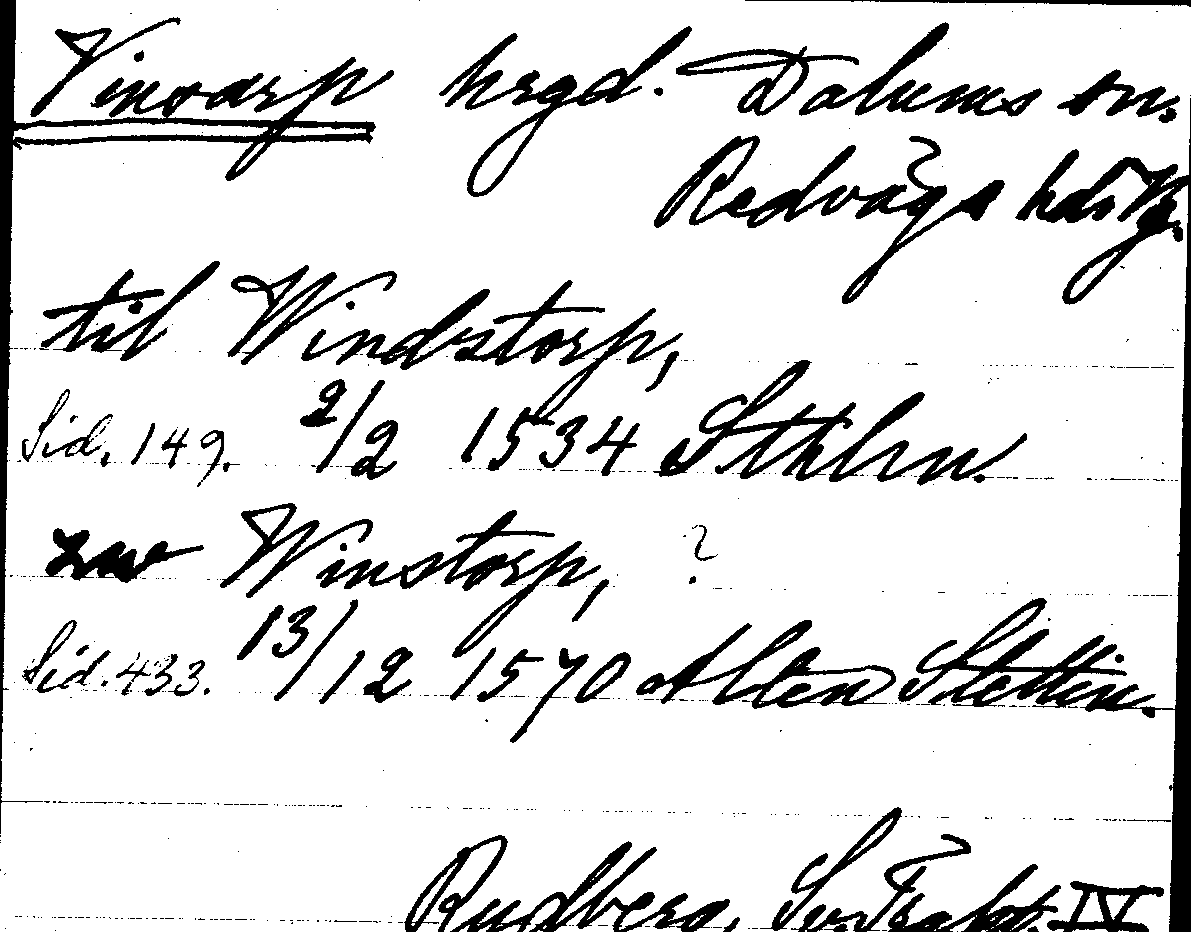 Vinsarp hrgd. Dalums sn.
Redvägs hd. Vg.
til Windstorp,
Sid. 149. 2/2 1534 Sthlm.
zw Winstorp, ?
Sid. 433. 13/12 1570 Alten Stettin.
Rydberg, Sv. Trakt. IV